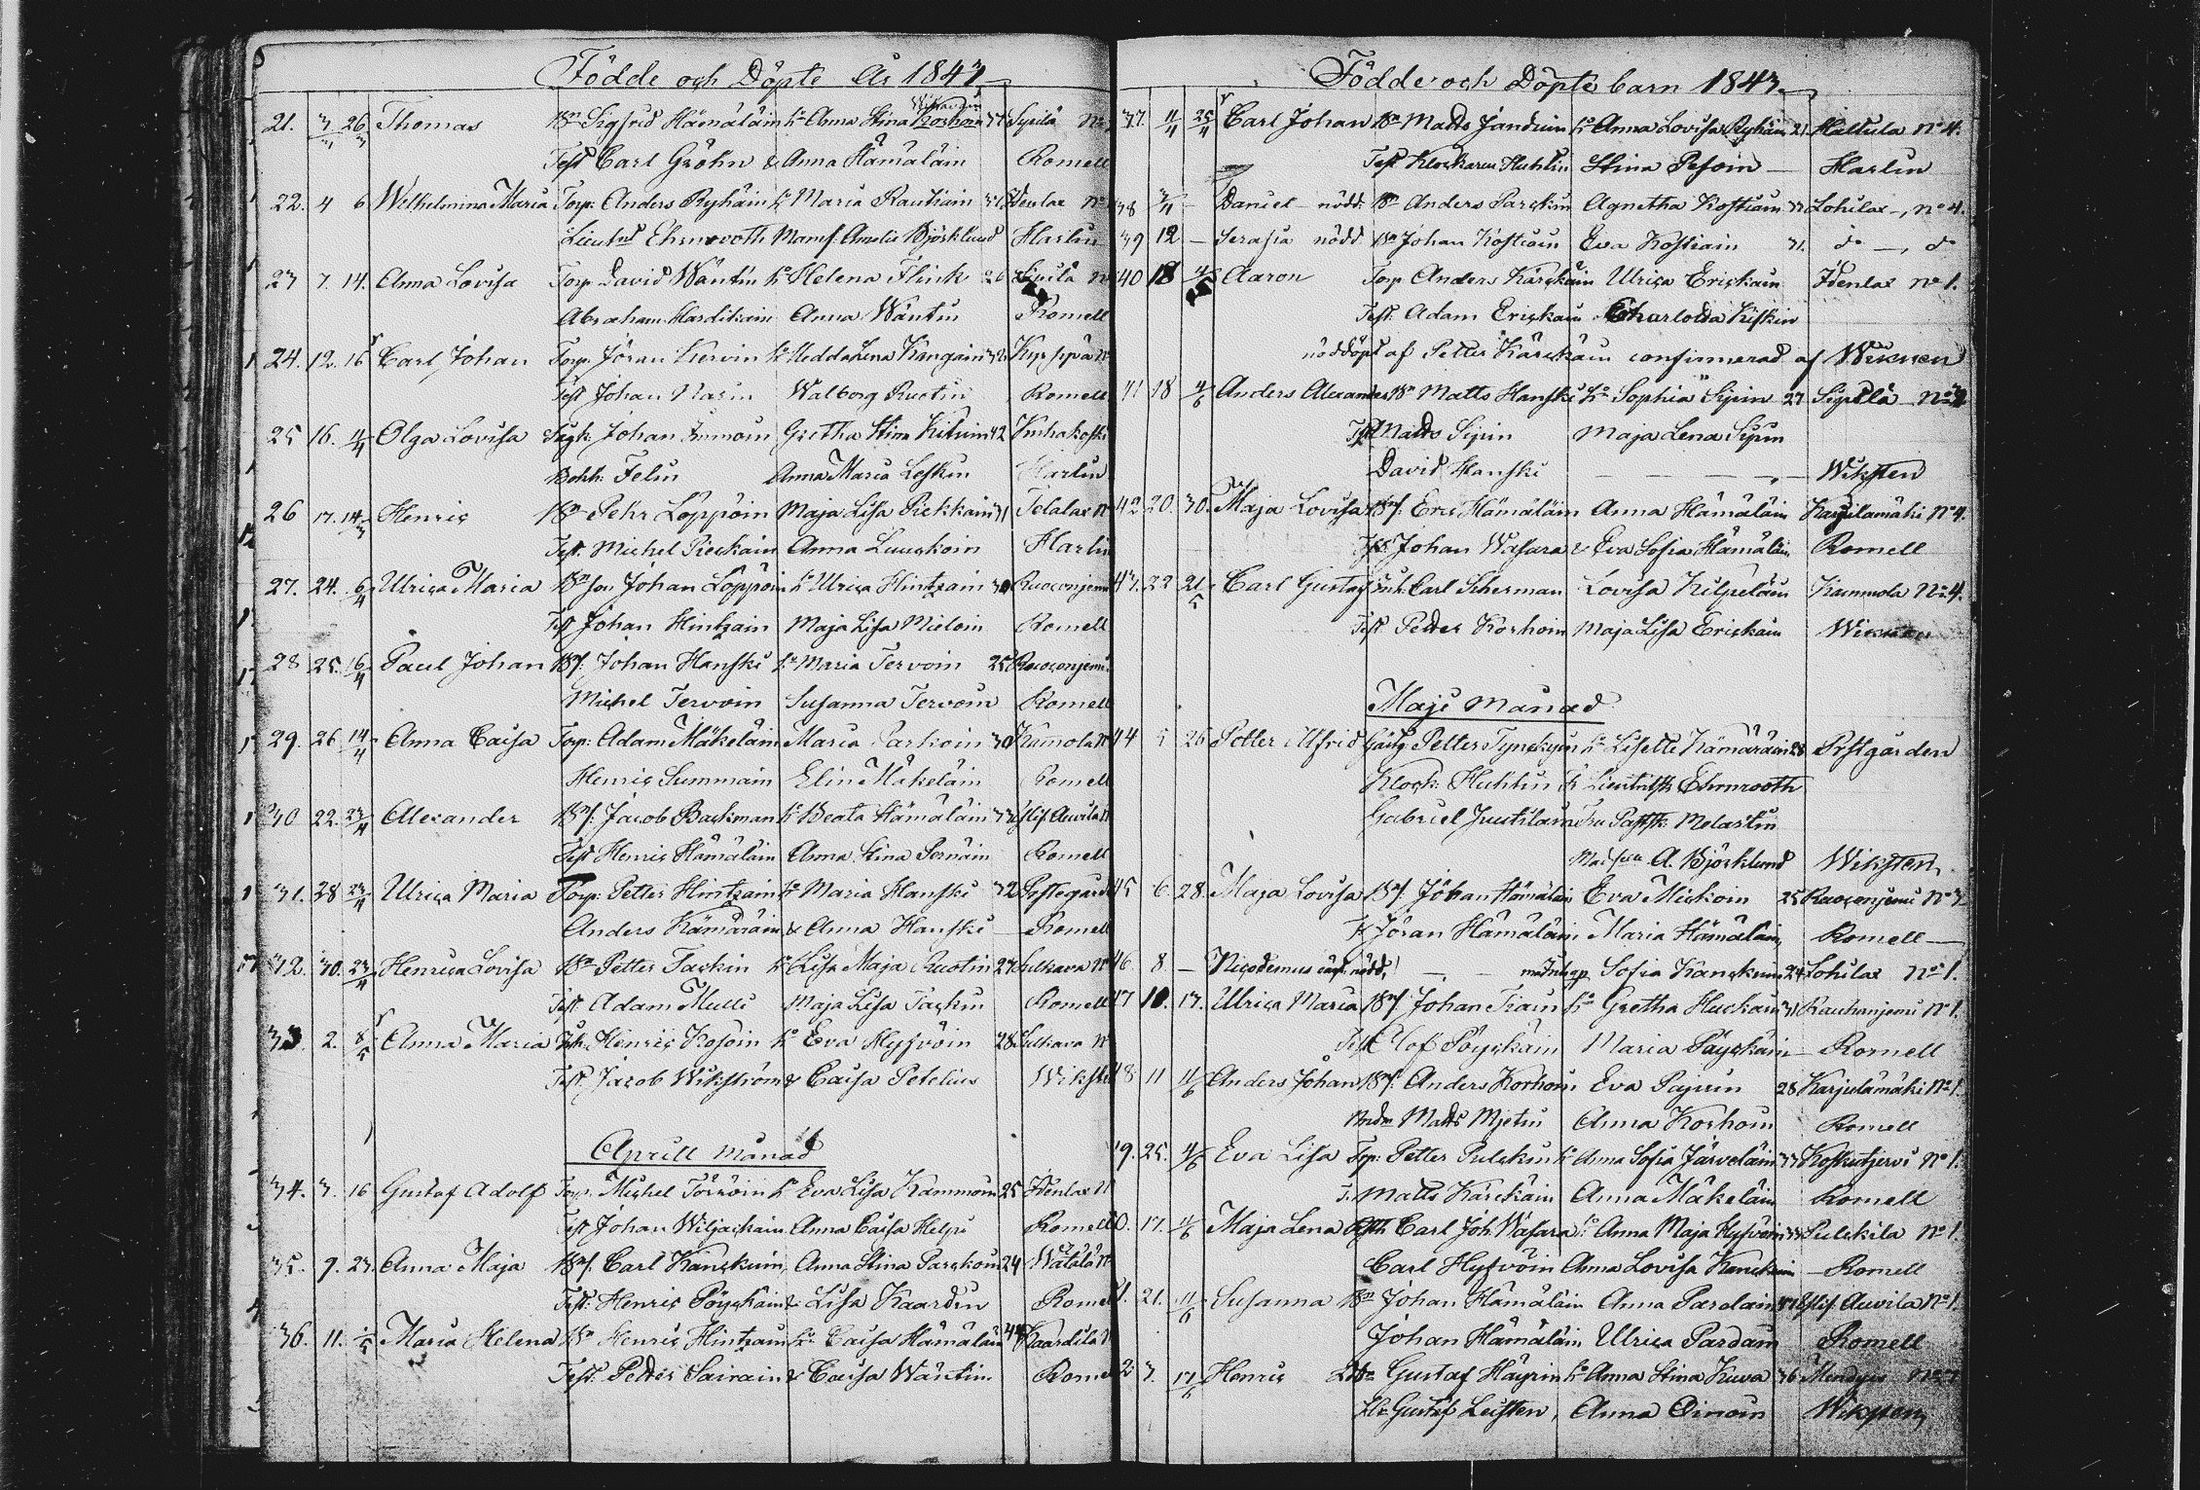 Födde och Döpte År 1843
21. 3 26/3 Thomas Bn Sigfrid Hämäläin h: Anna Stina Korhoin 37 Sysilä No
Test Carl Gröhn & Anna Hämäläin Romell
22. 4 6 Wilhelmina Maria Torp. Anders Ryhäin h: Maria Rautiain 31 Idenlax No
Lieutnt Ehrnrooth Mamsl. Amelie Björklund Harlin
23 7. 14. Anna Lovisa Torp David Wäntin h: Helena Flink 26 No
Abraham Hardikain Anna Wäntin Romell
24. 12. 16 Carl Johan Torp. Jöran Kervin h: Hedda Lena Kangain 32
Test Johan Walborg Rustin Romell
25 16. 4/4 Olga Lovisa Johan Immoin Gretha Stina 42 Kuhakoski
Bokh: Felin Anna Maria Leskin Harlin
26 17. 14/3 Henric Bn Pehr Löppöin Maja Lisa Piekkain 31 Telalax No
Test. Michel Pieckain Anna Harlin
27. 24. 6/4 Ulrica Maria Bn Son Johan Löppöin h: Ulrica Hintzain 30 Ruoconjemi
Test Johan Hintzain Maja Lisa Mieloin Romell
28 25. 16/4 Paul Johan Bn: Johan Hanski h: Maria Tervoin 25 Ruoconjemi
Michel Tervoin Susanna Tervoin Romell
29. 26 14/4 Anna Caisa Torp: Adam Mäkeläin Maria Parkoin 30 Kammola No
Henric Summain Elin Mäkeläin Romell
30 22. 23/4 Alexander Bn: Jacob Backman h: Beata Hämäläin 33 Auvila No
Test Henric Hämäläin Anna Stina Romell
31. 28 23/4 Ulrica Maria Torp: Petter Hintzain h: Maria Hanski 32 Postegård
Anders Kämäräin & Anna Hanski Romell
32. 30. 23/4 Henrica Lovisa Bn Petter Tackin h: Lisa Maja Rustin 23 Sulkava No
Test. Adam Mulli Maja Lisa Tackin Romell
33. 2. 8/5 Anna Maria Inh: Henric Kosoin h: Eva Hyfvöin 28 Sulkava No
Test. Jacob Wikström & Caisa Petelius
Aprill månad
34. 3. 16 Gustaf Adolf Torp. Michel Törröin h: Eva Lisa Kammoin 25 Idenlax No
Test Johan Wiljackain Anna Caisa Helpi Romell
35. 9. 23. Anna Maja Bn: Carl Kanckuin Anna Stina Parckoin 24 Wätälä No
Test: Henric Pöyckäin & Lisa Kaardin Romell
36. 11. Maria Helena Bn Henric Hintzain h: Caisa Hämäläin 44 Kaardila No
Test. Petter Sairain & Caisa Wäntin Romell
Födde och Döpte barn 1843
37. 11/4 25/4 Carl Johan Bn Matts Janduin h: Anna Lovisa Ryhäin 21 Hallula No 4.
Test Klockaren Huhtin Stina Pesoin — Harlin
38 — Daniel nödd: Bn Anders Parckin Agnetha Kostiain 32 Lohilax —, No 4.
39 12 — Serafia nödd Bn Johan Kostiain Eva Kostiain 31. do —, do
40 18 Aaron Torp Anders Kärckäin Ulrica Erickain Idenlax No 1.
Test. Adam Erickain Charlotta Kiskin
nöddöpt af Petter Kärckäin confirmerad af Wiksten
41 18 4/6 Anders Alexander Bn Matts Hanski h: Sophia Sipin 27 Sipilä No
Test Matts Sipin Maja Lena Sipin
David Hanski — Wiksten
42 20. 30. Maja Lovisa Bn: Eric Hämäläin Anna Hämäläin Karjilamäki No 4.
Test Johan Wasara & Eva Sofia Hämäläin Romell
43. 22. 21/5 Carl Gustaf Inh: Carl Scherman Lovisa Kilpeläin Kammola No 4.
Test Petter Korhoin Maja Lisa Erickain
Maji Månad
44 5 26 Petter Alfrid Petter Tynckyin h: Lisette Kämäräin 28 Prstgården
Klock. Huhtin & Ehrnrooth
Gabriel Fru Melartin
A. Björklund Wiksten
45 6 28 Maja Lovisa Bn: Johan Hämäläin Eva Mickoin 25 Ruoconjemi No 3
T: Jöran Hämäläin Maria Hämäläin Romell —
46 8 — Nicodemus nödd: — — Sofia Kanckuin 24 Lohilax No 1.
47 10. 17. Ulrica Maria Bn: Johan Tiain h: Gretha Huckain 31 Rauhanjemi No 1.
Test Olof Pöyckäin Maria Päyckäin — Romell
48 11 11/6 Anders Johan Bn: Anders Korhoin Eva Papuin 28 Karjulämäki No 1.
Matts Mjetin Anna Korhoin Romell
49. 25. 4/6 Eva Lisa Torp: Petter Pulckin h: Anna Sofia Järveläin 33 Koskutjervi No 1.
T: Matts Kärckäin Anna Mäkeläin Romell
50. 17. 4/6 Maja Lena Carl Joh: Wasara h: Anna Maja Hyfvöin 33 Pulckila No 1.
Carl Hyfvöin Anna Lovisa Kanckuin — Romell
51. 21. 11/6 Susanna Bn Johan Hämäläin Anna Pardain Auvila No 1.
Johan Hämäläin Ulrica Pardain Romell
52 3. 17/5 Henric Gustaf Häyrin h: Anna Stina Kuva 36
Gustaf Leisten, Anna Oinoin Wiksten